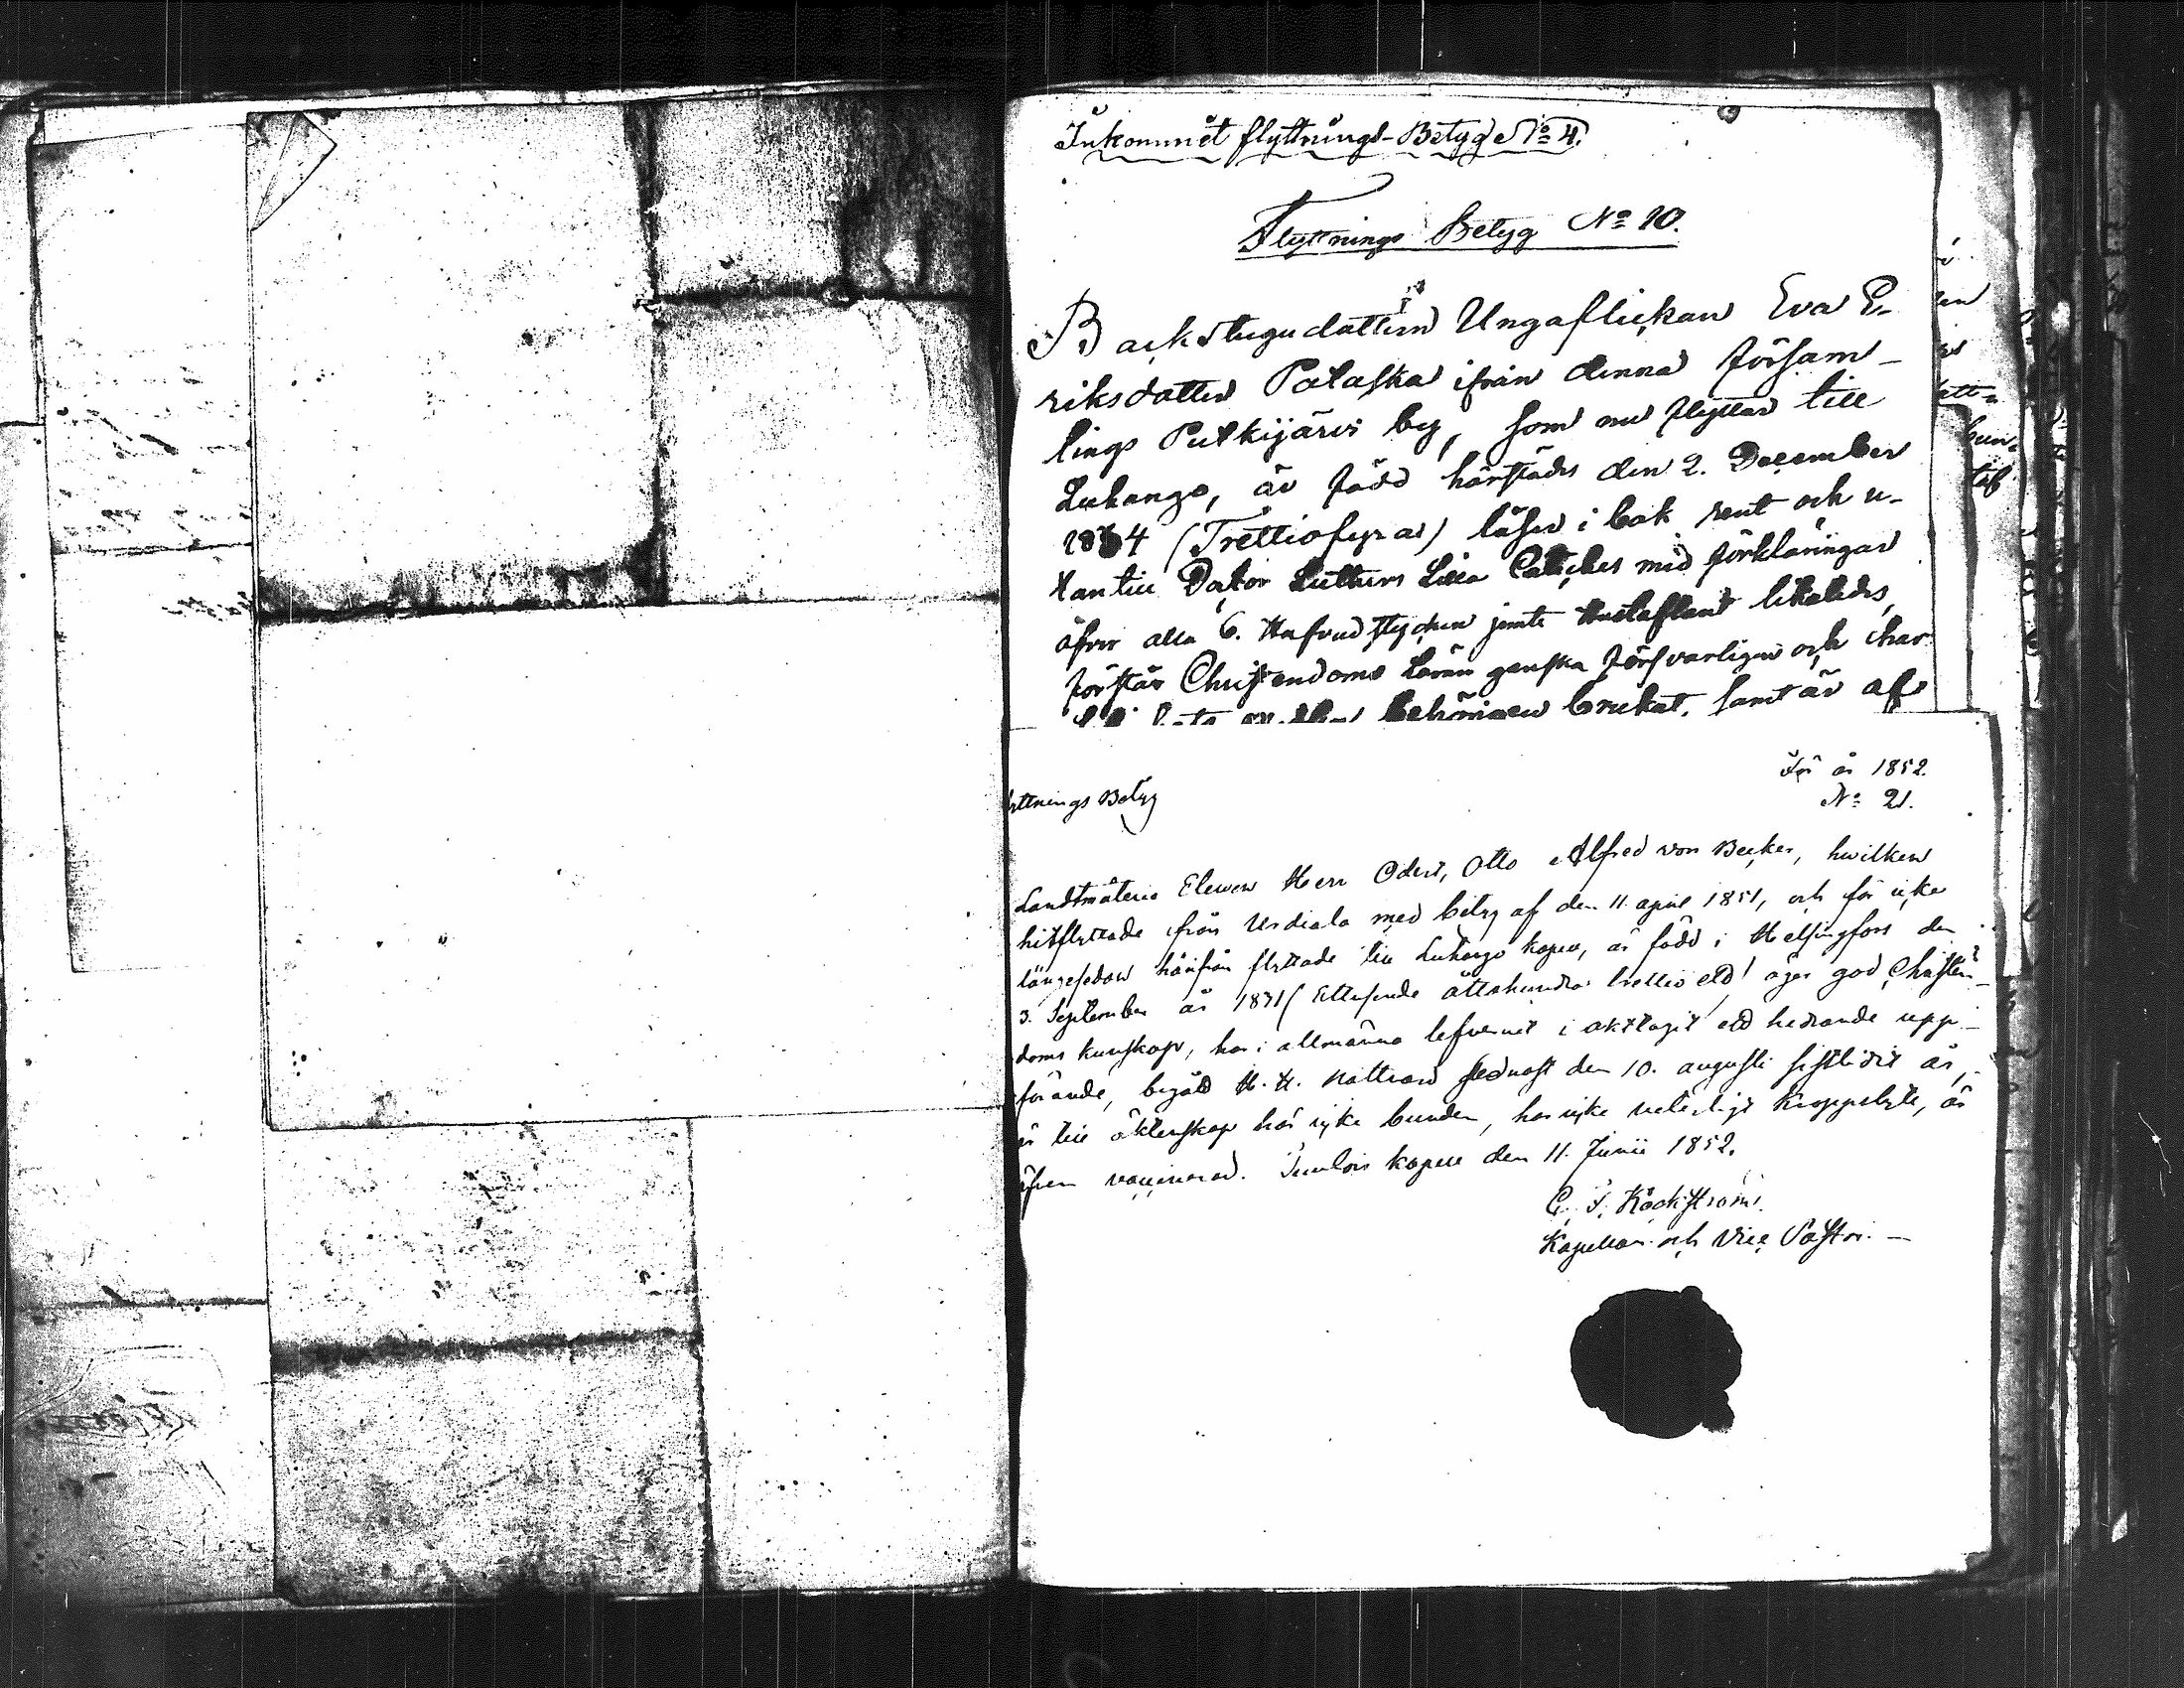 Inkommet flyttnings-Betyg No 4.
Flyttnings Betyg No 10.
Backstugudattern Ungaflickan Eva E-
riksdotter Palaska ifrån denna Församl-
lings Putkijärvi by, som nu flyttar till
Luhango, är född härstädes den 2. December
1834 (Trettiofyra) läser i bok rent och u-
tantill Doktor Luthers Lilla Catches med förklaringar
öfver alla 6. Hufvudstycken jemte Hustaflan likaledes,
förstår Christendoms Läran ganska försvarligen och har
behörigen brukat, samt är af
För år 1852.
No 21.
yttnings Betyg
Landtmäteri Eleven Herr Odert, Otto Alfred von Becker, hwilken
hitflyttade från Urdiala med betyg af den 11 april 1851, och för icke
längesedan härifrån flyttade till Luhango kapell, är född i Helsingfors den
3. September år 1831 (Ettusende åttahundra trettio ett) äger god Christen-
doms kunskap, har i allmänna lefvernet i akttagit ett hedrande upp-
förande, begått H. H. Nattvard sednast den 10. augusti sistlidit år,
är till äktenskap här icke bunden, har icke veterligt kroppslyte, är
äfven vaccinerad. kapell den 11. Junii 1852.
C. F. Käckström.
Kapellan och Vice Pastor.